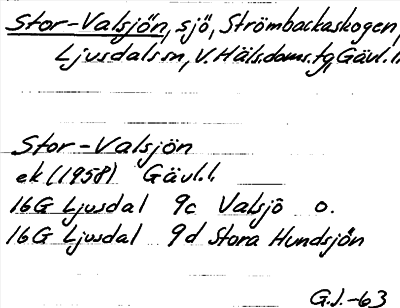 Stor-Valsjön, sjö, Strömbackaskogen,
Ljusdals sn, V. Häls. doms. tg, Gävl. l.
Stor-Valsjön
ek (1958) Gävl. l.
16G Ljusdal 9c Valsjö o.
16G Ljusdal 9d Stora Hundsjön
G.J.-63